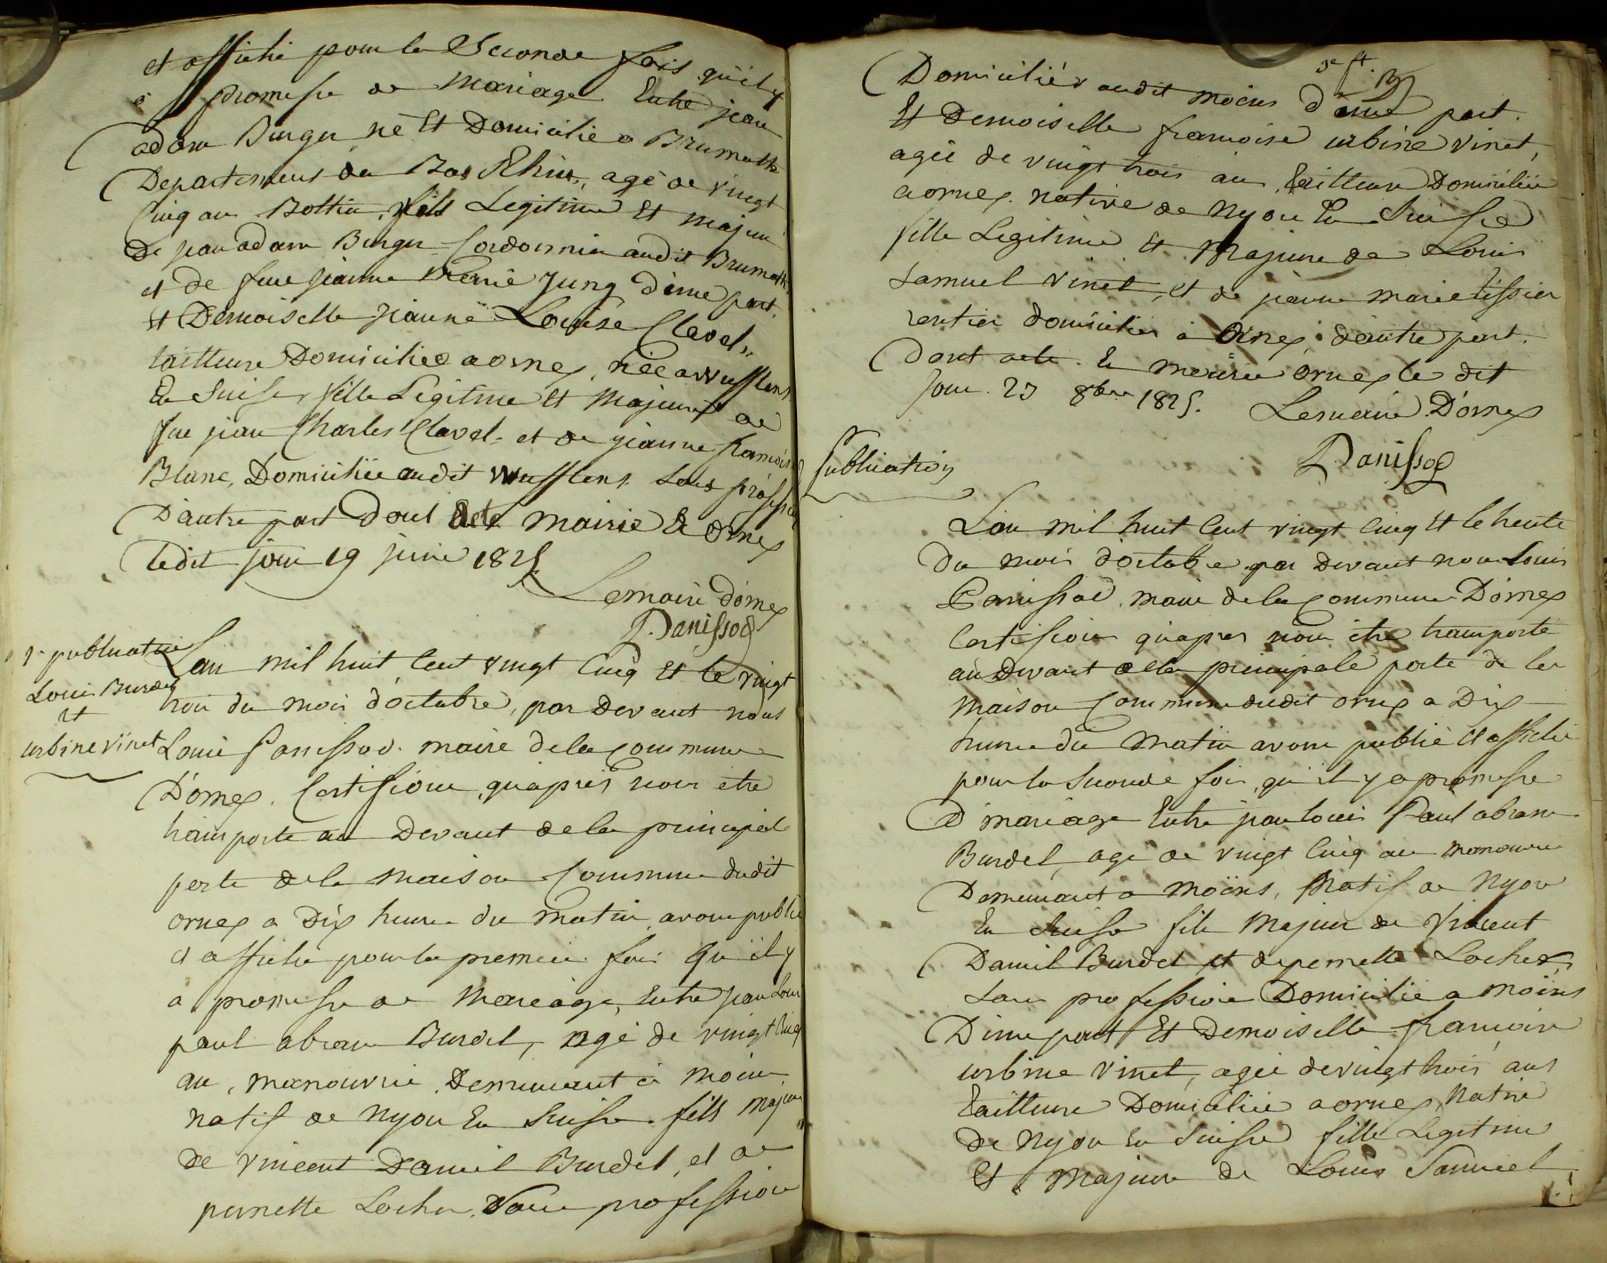 et affiché pour la Seconde fois qu'il y
a promesse de Mariage Entre jean
adam Burger né Et Domicilié a Brumath
Departement du Bas Rhin, agé de vingt
Cinq ans Bottier, fils Legitime Et Majeur
De jean adam Burger Cordonnier audit Brumath
et de feue jeanne Marie Jung d'une part.
Et Demoiselle jeanne Louise Clavel,
tailleuse Domiciliée a ornex, née a Wufflens
En Suisse, fille Legitime Et Majeure de
feu jean Charles Clavel, et de jeanne francoise
Blanc, Domiciliée audit Wufflens Sans profession
D'autre part Dont Acte Mairie de Ornex
ledit jour 19 juin 1825
Le maire d'ornex
Panissod
1r publication
Louis Burdet
et
urbine vinet
Lan mil huit Cent vingt Cinq Et le vingt
trois du mois d'octobre, par Devant nous
Louis Panissod. maire de la Commune
D'ornex. Certifions, qu'apres nous etre
transporté au Devant de la principale
porte de la maison Commune dudit
ornex a Dix heures du Matin avons publié
et affiché pour la premiere fois Qu'il y
a promesse de Mariage, Entre jean Louis
paul abram Burdet, agé de vingt Cinq
an, manouvrie Demeurant a Moëns
natif de Nyon En Suisse fils Majeur
de vincent Daniel Burdet, et de
pernette Locher Sans profession
Domiciliés audit Moëns d'une part.
Et Demoiselle francoise urbine vinet,
agée de vingt trois ans tailleuse Domiciliée
a ornex. native de Nyon En Suisse
fille Legitime Et Majeure de Louis
Samuel vinet, et de jeanne marie tissier
rentier domiciliés à Ornex, d'autre part.
Dont acte En mairie Ornex le dit
jour 23 8bre 1825. Le maire D'ornex
Panissod
Publication
L'an mil huit Cent vingt Cinq Et le trente
Du mois d'octobre par Devant nous Louis
Panissod. maire de la Commune D'ornex
Certifions qu'apres nous être transporté
au Devant de la principale porte de la
Maison Commune dudit ornex a Dix
heures du Matin avons publié Et affiché
pour la Seconde fois, qu'il y a promesse
D mariage Entre jean Louis Paul abram
Burdet, agé de vingt Cinq ans Manouvrie
Demeurant a Moëns, Natif de Nyon
En Suisse fils Majeur de Vincent
Daniel Burdet et de pernette Locher
Sans profession Domicilié a Moëns
D'une part Et Demoiselle francoise
urbine vinet, agée de vingt trois ans
tailleuse Domiciliée a ornex Native
De Nyon En Suisse fille Legitime
Et Majeure de Louis Samuel